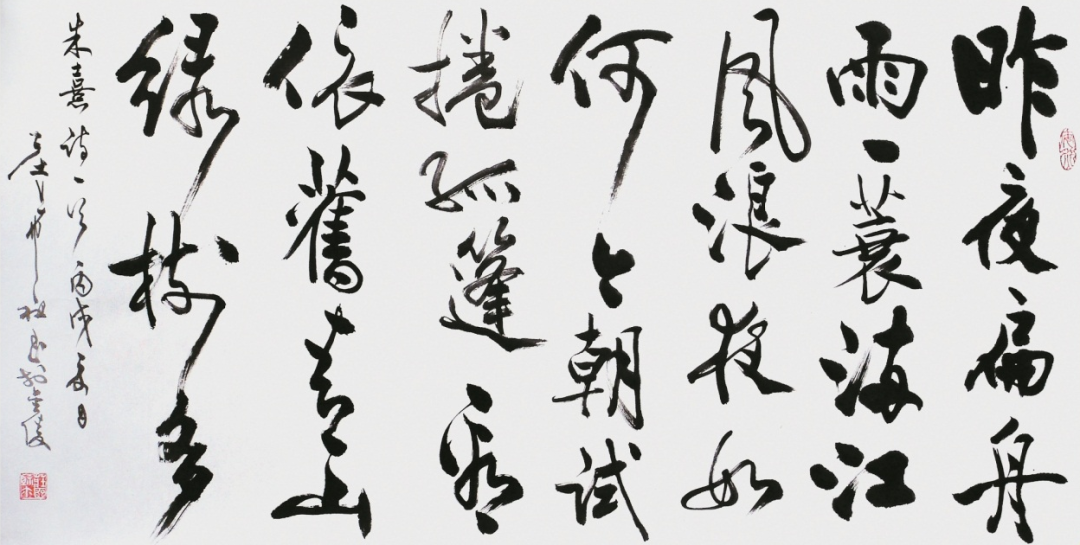 昨夜扁舟
雨一蓑满江
风浪夜如
何今朝试
捲孤篷看
依舊青山
绿树多
朱熹诗一首丙戌夏月
於金陵